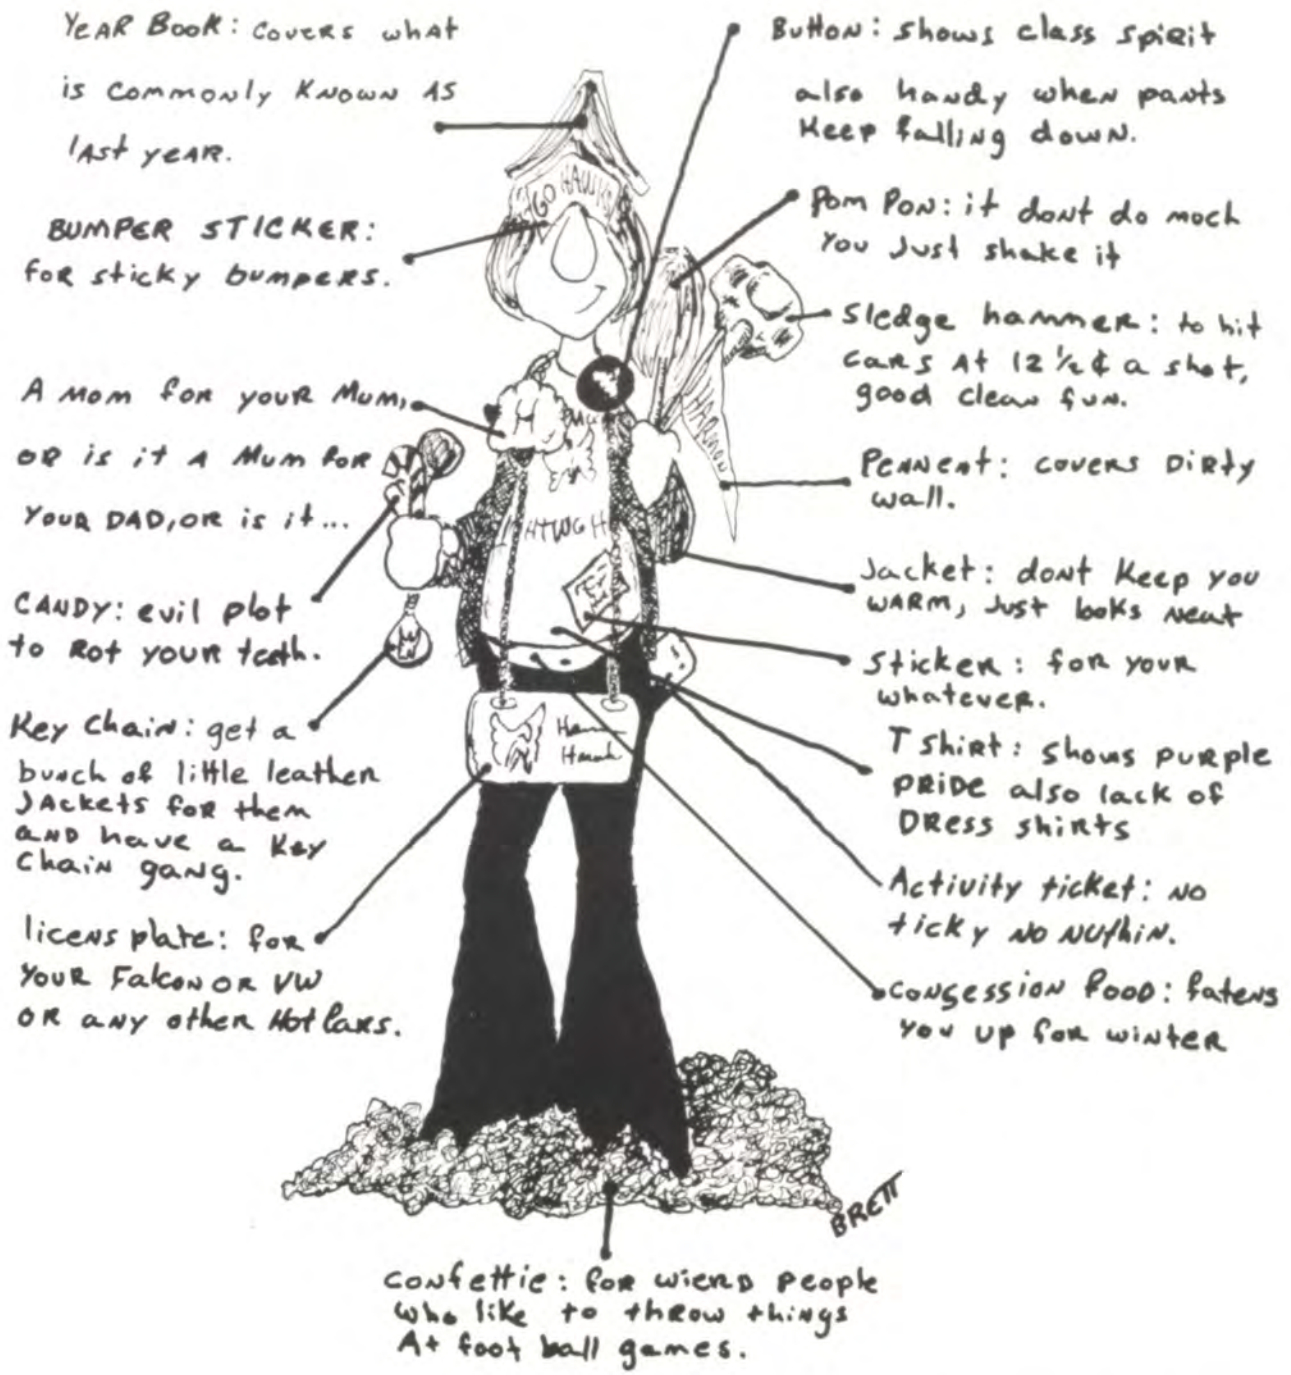 YEAR BOOK: COVERS what
is commonly KNOWN AS
last year.
BUMPER STICKER:
for sticky bumpers.
A MOM for your Mum,
OR is it A Mum for
YOUR DAD, OR is it...
CANDY: evil plot
to Rot your teeth.
Key Chain: get a
bunch of little leather
Jackets for them
AND have a Key
Chain gang.
licens plate: for
YOUR Falcon OR VW
OR any other Hot Cars.
Button: shows class spirit
also handy when pants
Keep falling down.
Pom Pon: it dont do moch
You Just shake it
Sledge hammer: to hit
CARS At 12 ½ ¢ a shot,
good clean fun.
Pennent: covers Dirty
wall.
Jacket: dont Keep you
WARM, Just looks Neat
Sticker: for your
whatever.
T Shirt: shows purple
PRIDE also lack of
DRess shirts
Activity ticket: NO
ticky NO NUthin.
Congession Food: fatens
You up for winter
GO HAWKS
H
HTWGH
BRETT
Confettie: for wierd people
who like to throw things
At foot ball games.